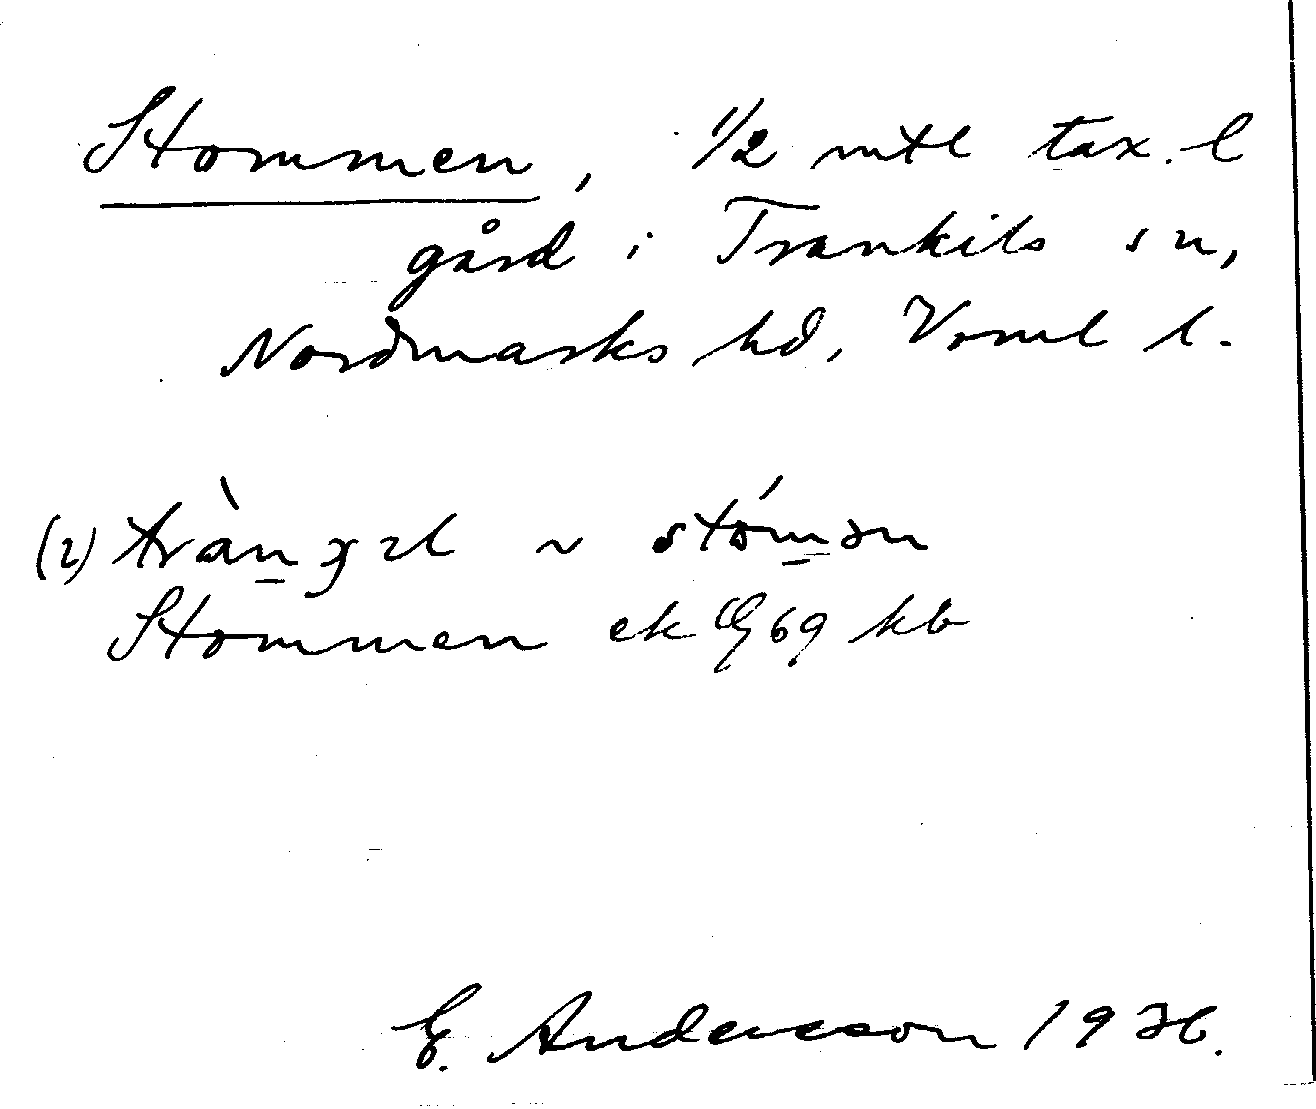 Stommen, 1/2 mtl tax. l
gård i Trankils sn,
Nordmarks hd, Värml l.
(i) ~ stómən
Stommen ek 69 kb
E. Andersson 1936.